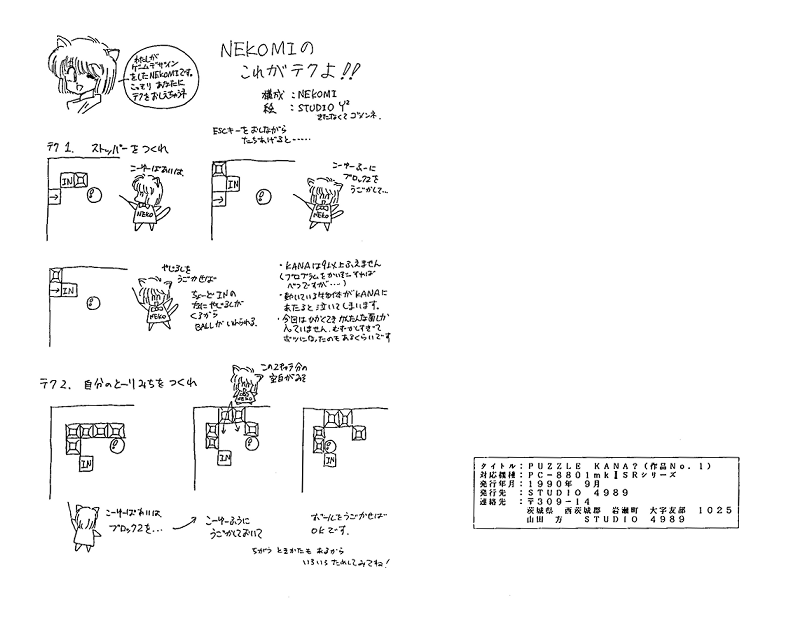 わたしが
ゲームデザイン
をしたNEKOMIです。
こっそり あなたに
テクをおしえちゃうネ
NEKOMIの
これがテクよ!!
構成：NEKOMI
絵：STUDIO Y²
きたなくてゴメンネ.
ESCキーをおしながら
たちあげると……
テク1. ストッパーをつくれ
こーゆーばあいは、
IN
→
NEKO
こーゆーふーに
ブロック2を
うごかして…
IN
→
NEKO
やじるしを
うごかせば
ちょーど INの
なにやじるしが
くるから
BALLがいれられる.
→IN
NEKO
・KANAは9以上ふえません
(プログラムをかいぞうすれば
べつですが…)
・動いている物体がKANAに
あたると泣いてしまいます。
・今回はひかくてきかんたんな面しか
入っていません. むずかしすぎて
ボツになったのもあるくらいです
テク2. 自分のとーりみちをつくれ
この2キャラ分の
空白がみそ
NEKO
IN
IN
IN
こーゆーばあいは、
ブロック2を…
こーゆーふうに
うごかしておいて
ボールをうごかせば
OKです.
ちがう ときかたも あるから
いろいろ ためしてみてね!
タイトル：PUZZLE KANA?(作品No.1)
対応機種：PC-8801mkⅡSRシリーズ
発行年月：1990年 9月
発行先　：STUDIO 4989
連絡先　：〒309-14
茨城県 西茨城郡 岩瀬町 大字友部 1025
山田 方 STUDIO 4989